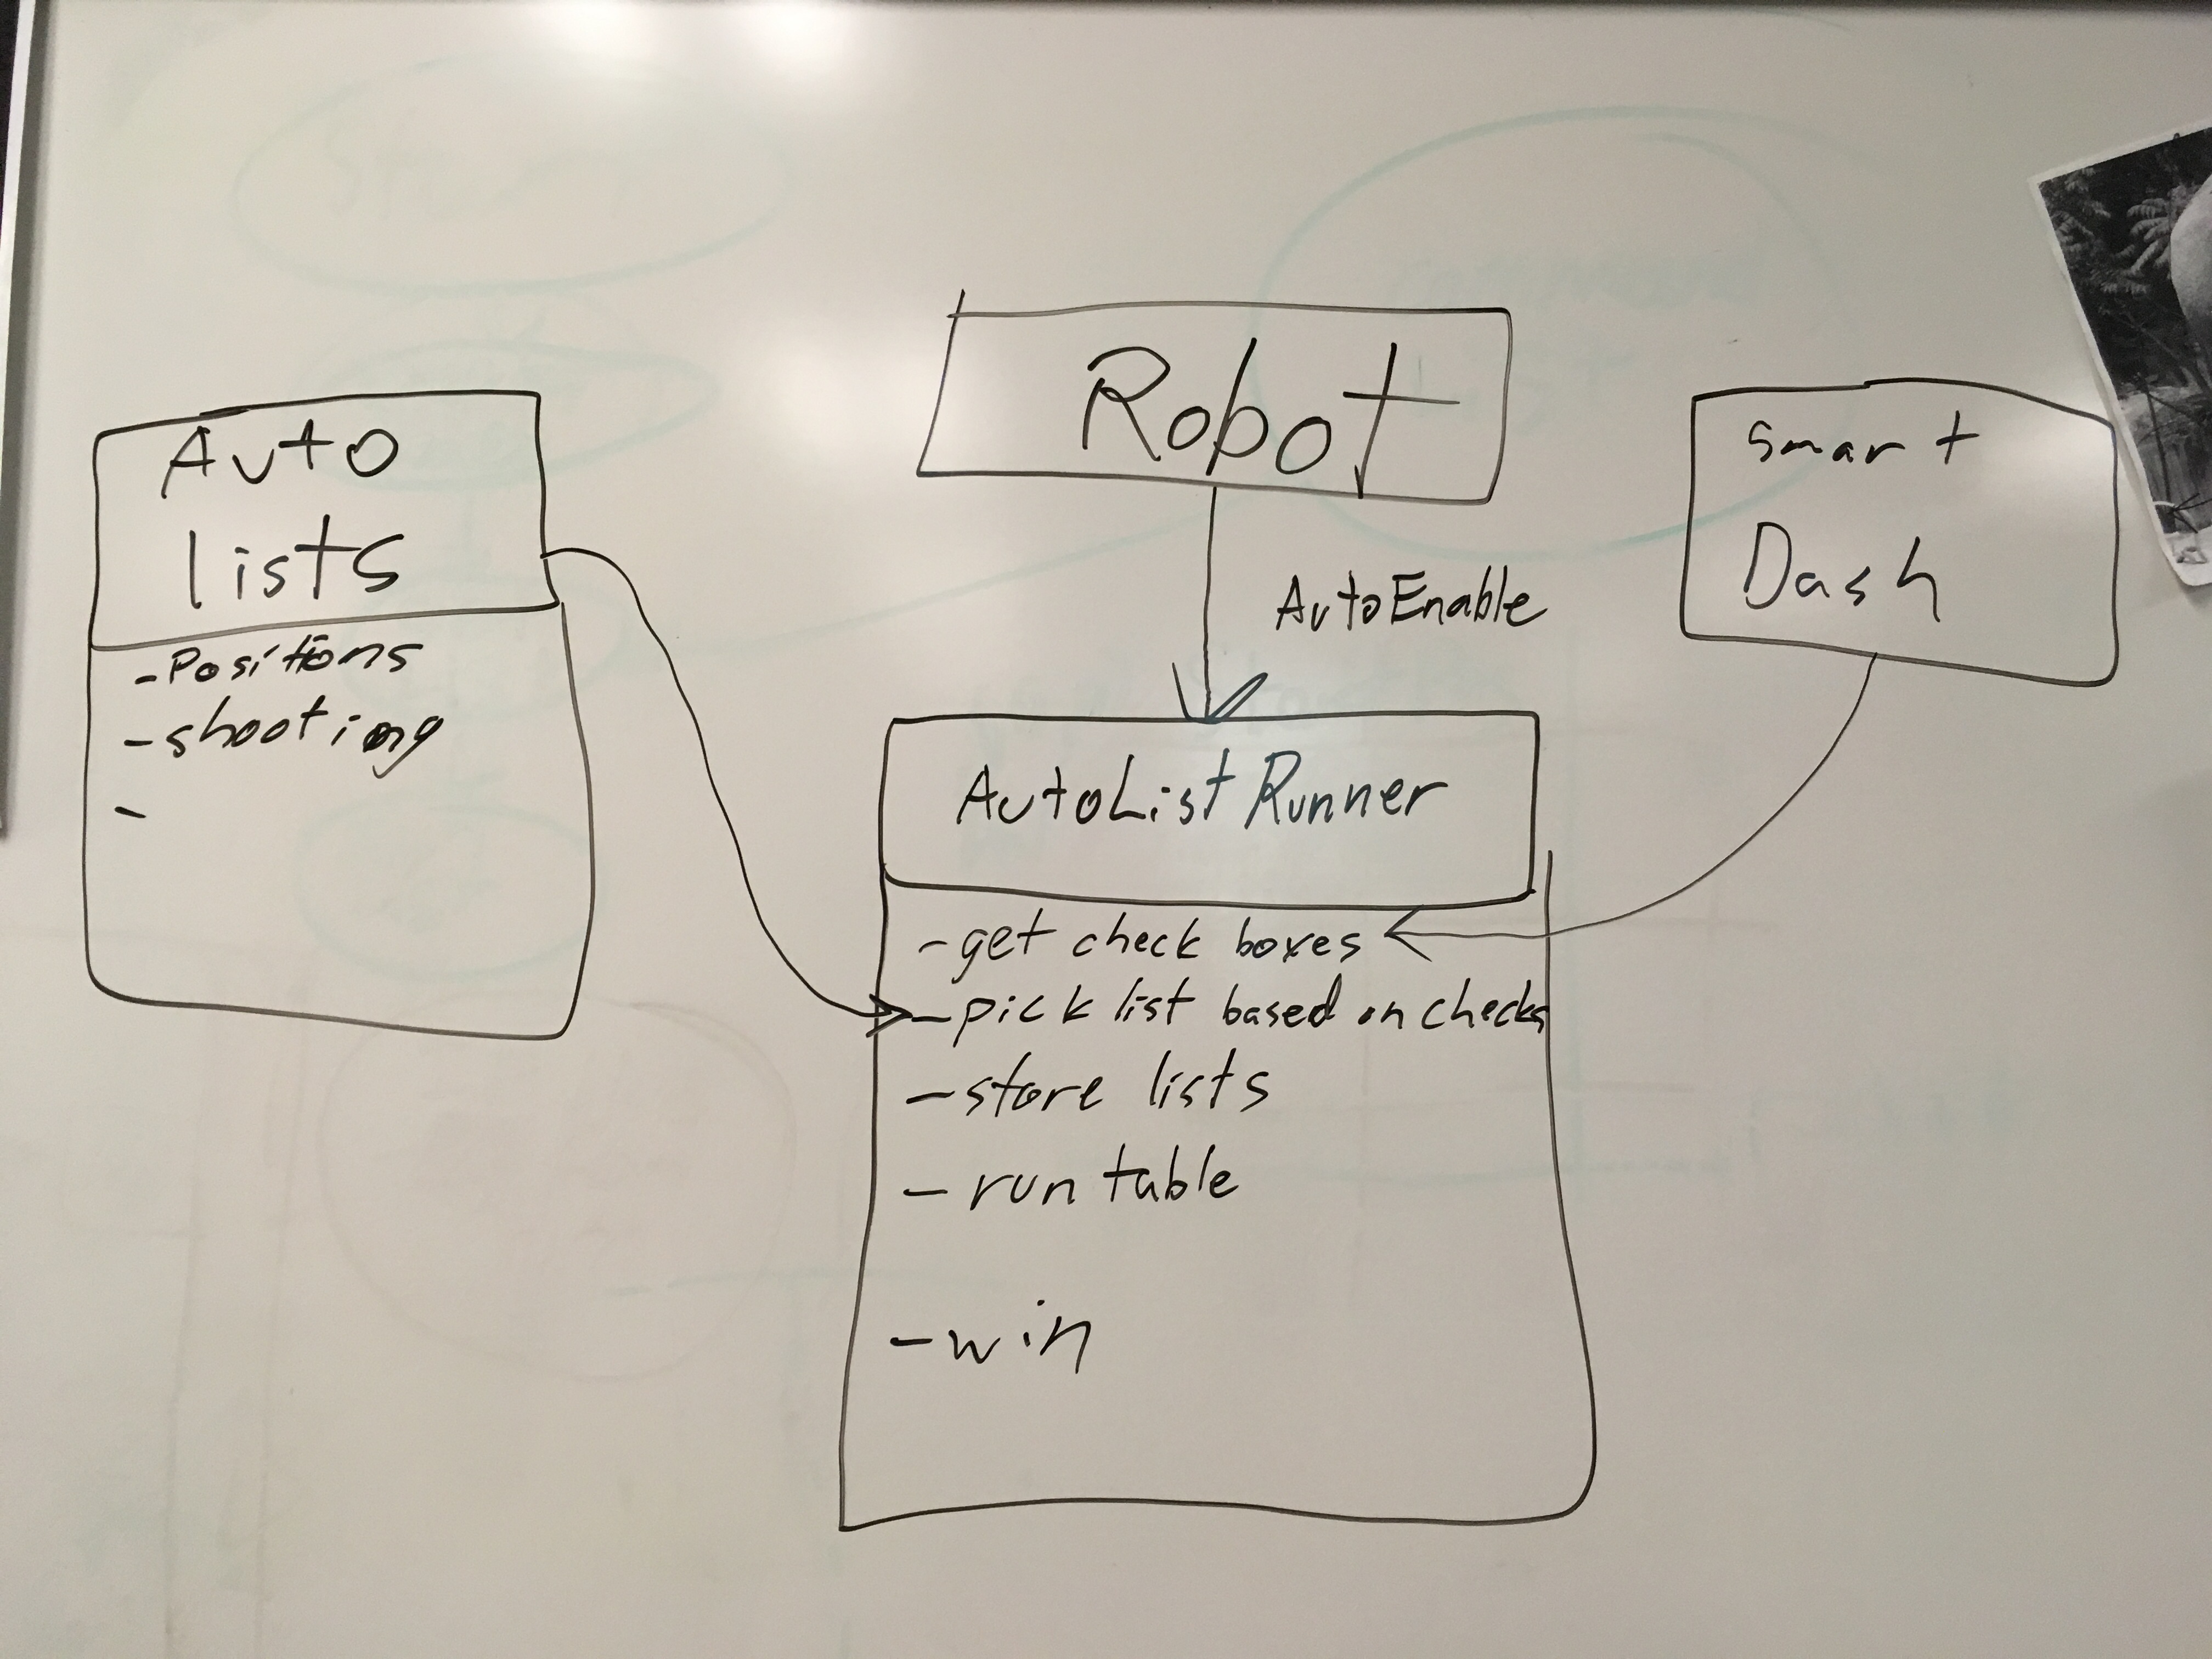 Auto
lists
- Positions
- shooting
-
Robot
AutoEnable
Smart
Dash
AutoList Runner
- get check boxes
- pick list based on checks
- store lists
- run table
- win